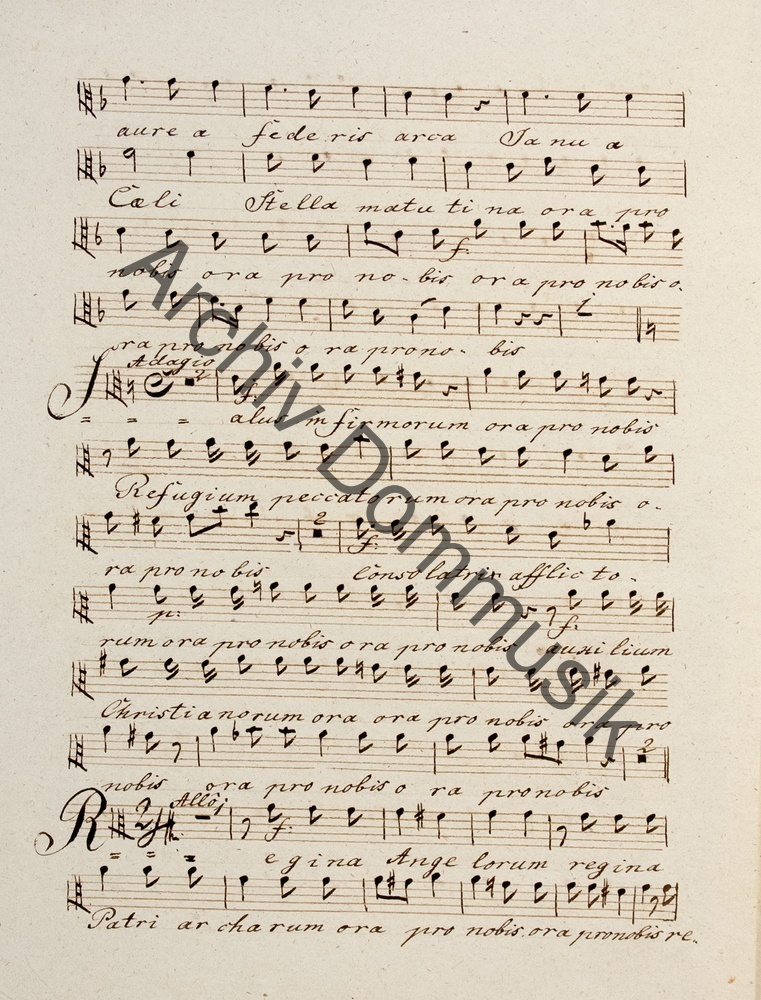 aure a fede ris arca Ja nu a
Cæli Stella matu ti na ora pro
nobis ora pro no - bis ora pro nobis o.
f:
ra pro nobis o ra prono - bis
Adagio
2
f:
S = = = alus in firmorum ora pro nobis
Refugium peccatorum ora pro nobis o -
2
f:
ra pro no bis Consolatrix afflic to -
p: f:
rum ora pro nobis ora pro nobis auxi lium
Christi anorum ora ora pro nobis ora pro
2
nobis ora pro nobis o ra pro nobis
Allo:
f:
R = = = egina Ange lorum regina
Patri ar charum ora pro nobis, ora pronobis re -
Archiv Dommusik